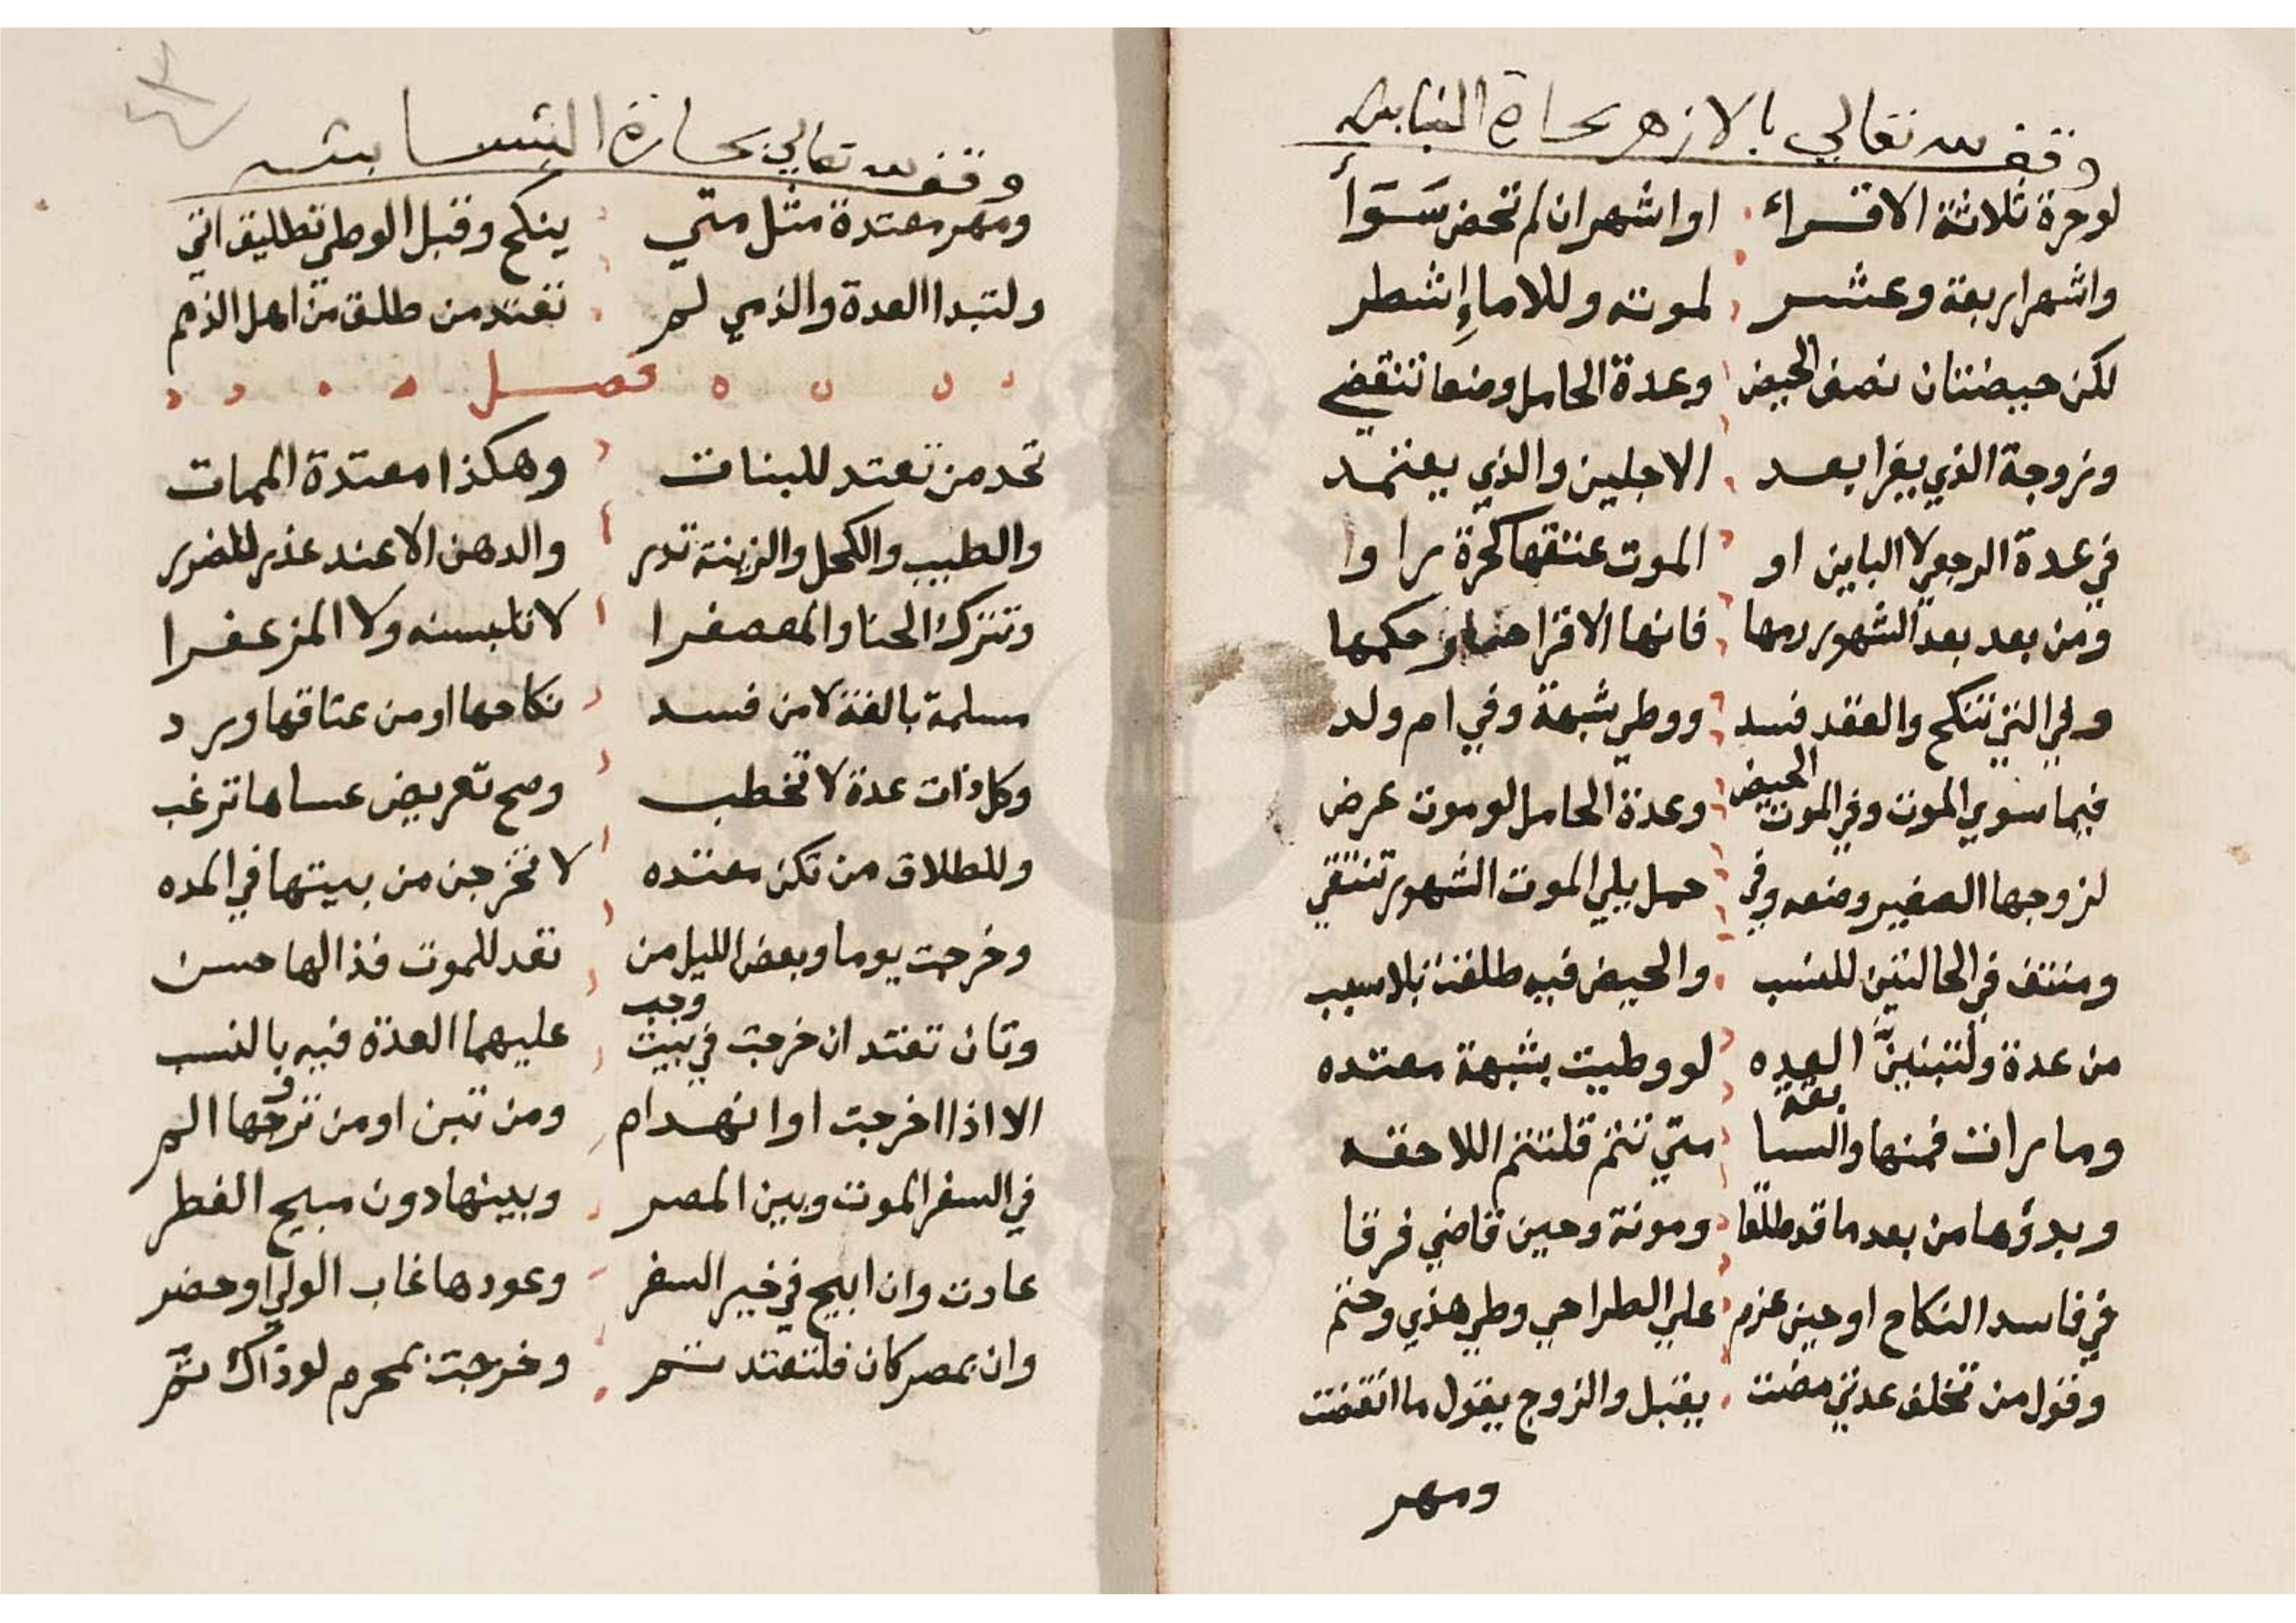 وقف لله تعالي بالازهر بحارة الشابشه
لوحرة ثلاثة الاقراء او اشهر ان لم تحض سَوَآء
واشهر اربعة وعشر لموته وللاماءِ اشطر
لكن حيضتان نصف الحيض وعدة الحامل وضعا تنقضي
وزوجة الذي يفرا بعد الاجلين والذي يعتمد
في عدة الرجعي لا الباين او الموت عتقها كحرة راوا
ومن بعد بعد الشهور دمها فانها الاقرا حكمها
وفي التي تنكح والعقد فسد ووطي شبهة وفي ام ولد
فيما سوي الموت وفي الموت الحيض وعدة الحامل لو موت عرض
لزوجها الصغير وضعه وفي حمل يلي الموت الشهور تنتقي
ومنتف في الحالتين للنسب والحيض فيه طلقت بلا سبب
من عدة ولتبتدينَّ العده لو وطيت بشبهة معتده
وما رات فمنها والسابقة متي تتم قلتتم اللاحقه
وبدؤها من بعد ما قد طلقا وموته وحين قاضي فرقا
في فاسد النكاح او حين عزم علي الطراحي وطي هذي وختم
وقول من تخلف عدتي مضت يقبل والزوج يقول ما انقضت
ومهر
وقف لله تعالي بحارة الشابشه
ومهر معتدة مثل متي ينكح وقبل الوطي تطليق اتي
ولتبدا العدة والذمي لم تعتد من طلق من اهل الذمم
فصل
تحد من تعتد للبنات وهكذا معتدة الممات
والطيب والكحل والزينة تدر والدهن الا عند عذر للضرر
وتترك الحنا والمعصفرا لا تلبسنه ولا المزعفرا
مسلمة بالغة لا من فسد نكاحها او من عتاقها ورد
وكل ذات عدة لا تخطب وصح تعريض عساها ترغب
وللطلاق من تكن معتده لا تخرجن من بيتها في المده
وخرجت يوما وبعض الليل من تعد للموت فذالها حسن
وتان تعتد ان خرجت في بيت وجب عليهما العدة فيه بالنسب
الا اذا اخرجت او انهدام ومن تبن او من تزوجها الم
في السفر الموت وبين المصر وبينها دون مبيح الفطر
عادت وان ابيح في خير السفر وعودها غاب الولي او حضر
وان بمصر كان فلتعتد ثم وخرجت بمحرم لو ذاك ثم